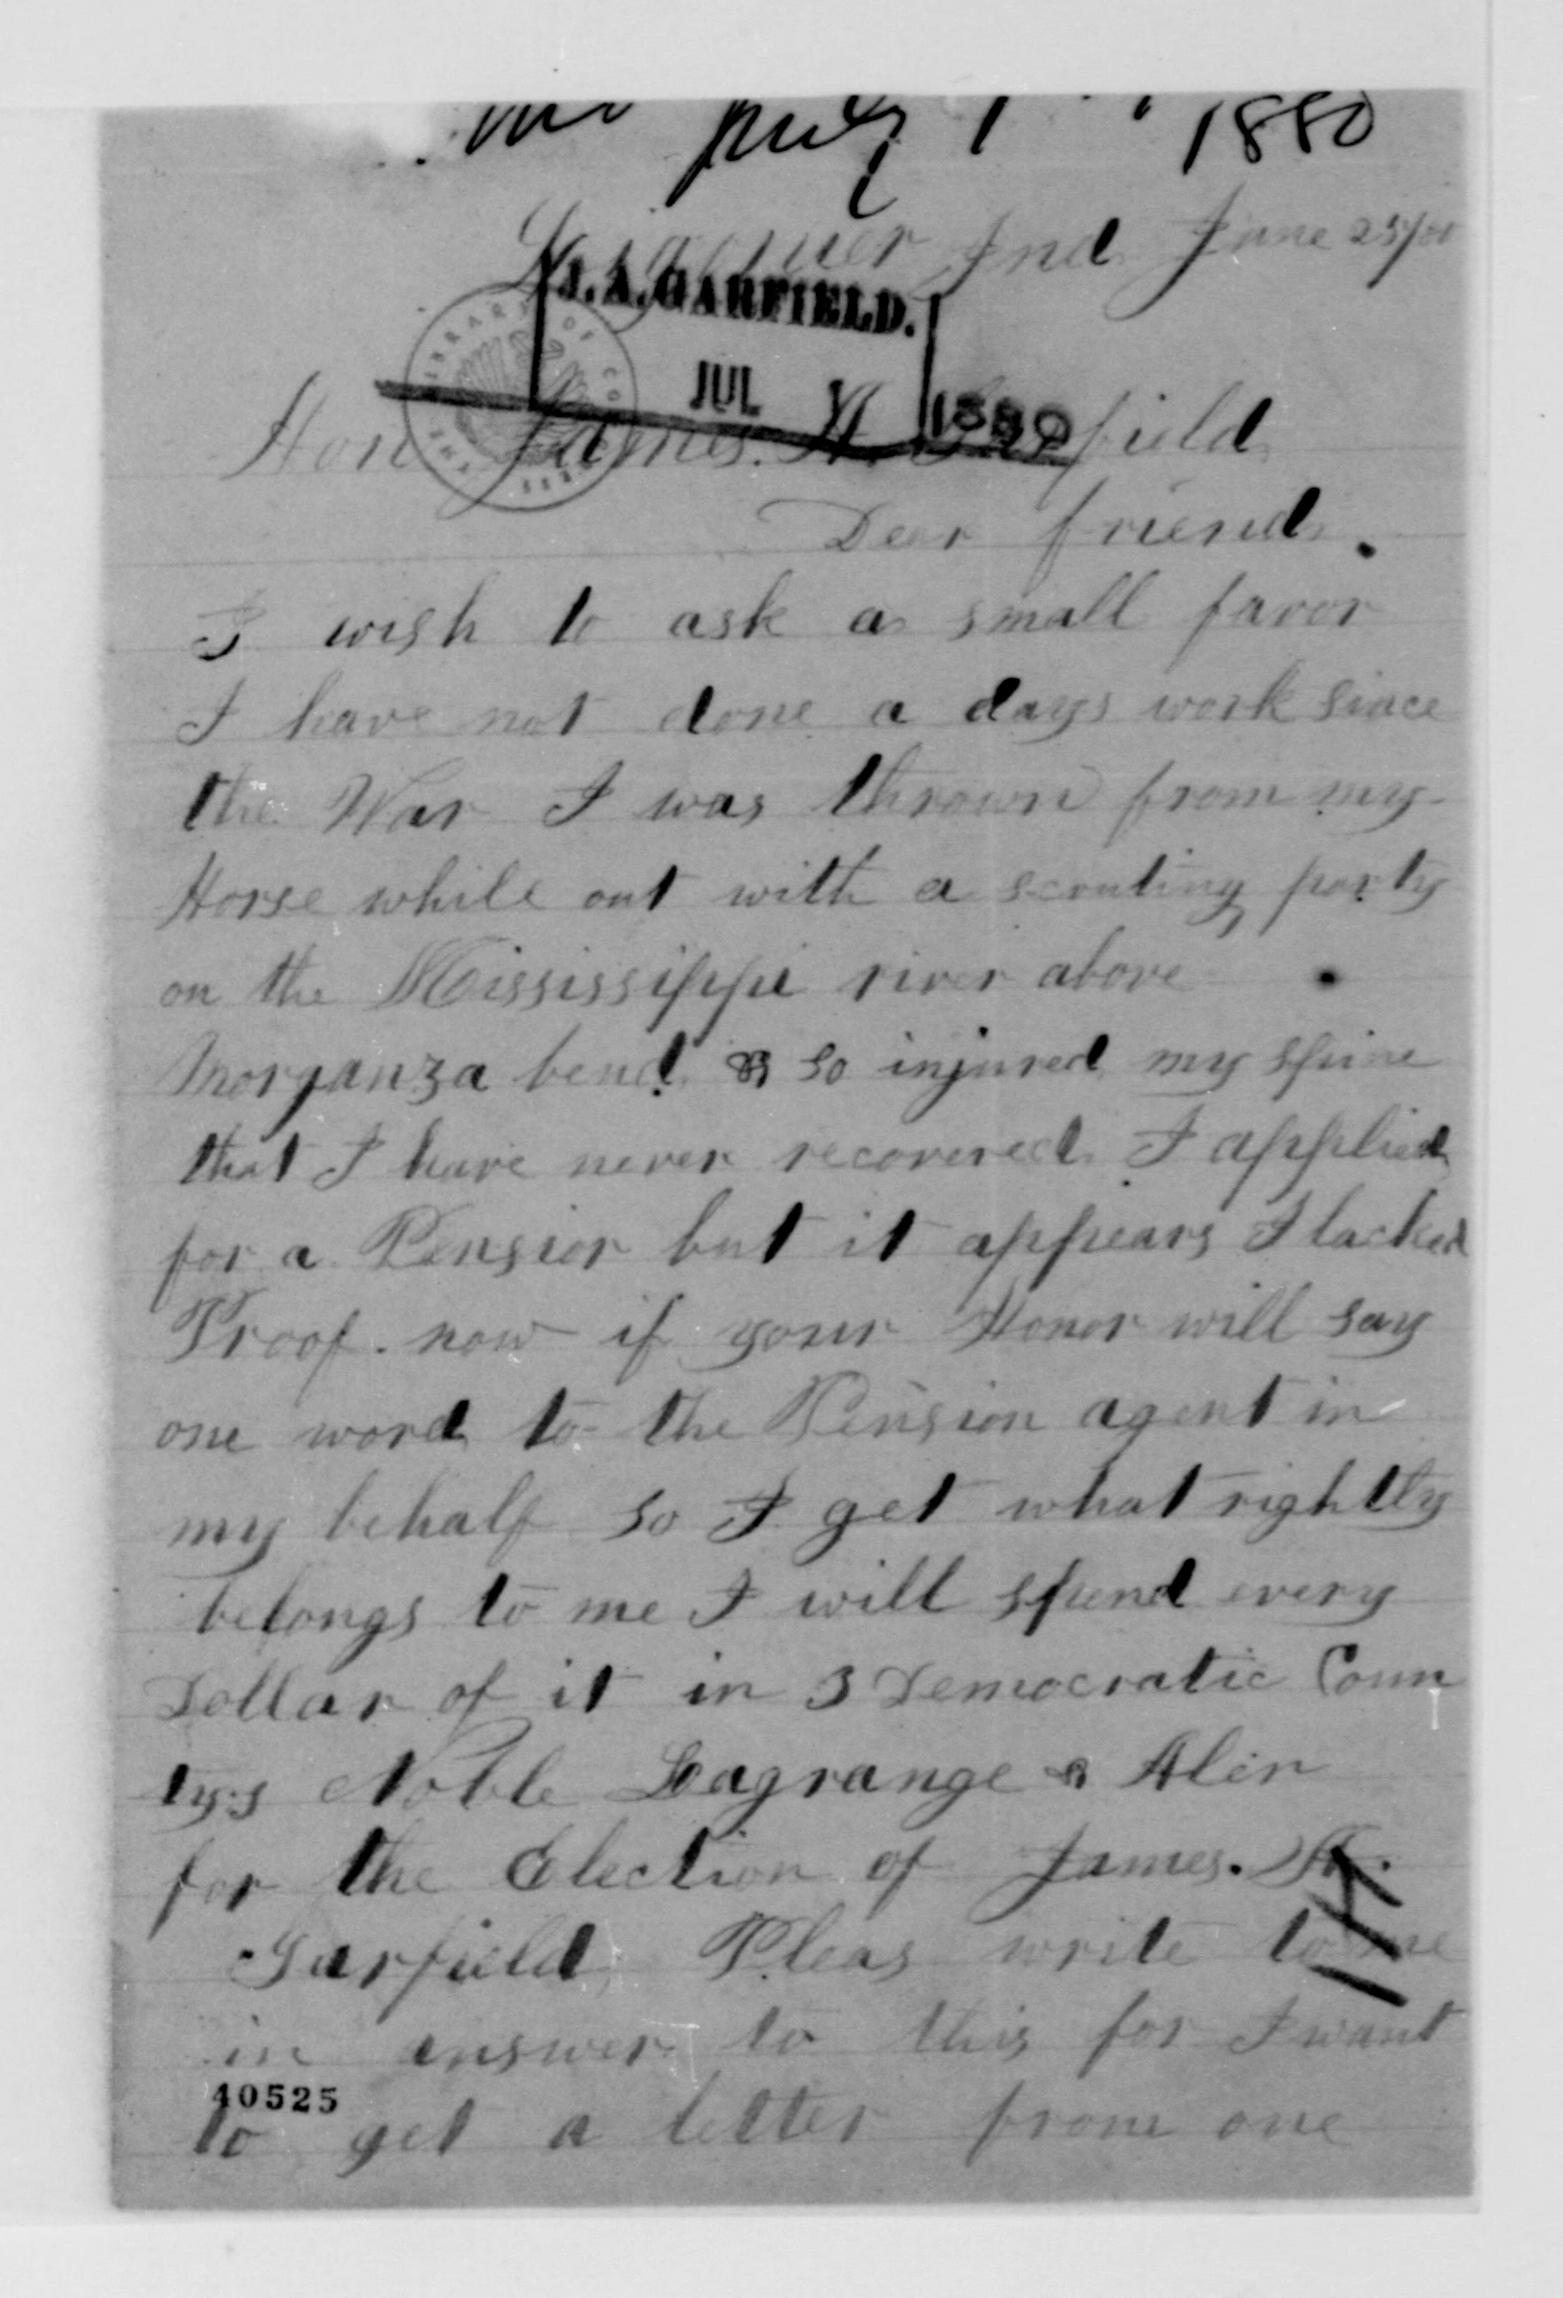 July 1 1880
Ligonier Ind June 25/80
J. A. GARFIELD.
JUL 1880
LIBRARY OF CO
Hon James. A. Garfield
Dear friend.
I wish to ask a small favor
I have not done a days work since
the War I was thrown from my
Horse while out with a scouting party
on the Mississippi river above
Morganza bend & so injured my spine
that I have never recovered I applied
for a Pension but it appears I lacked
Proof. now if your Honor will say
one word to the Pension agent in
my behalf so I get what rightly
belongs to me I will spend every
Dollar of it in 3 Democratic Coun
tys Noble Lagrange & Alen
for the Election of James. A.
Garfield Pleas write to me
in answer to this for I want
40525
to get a letter from one